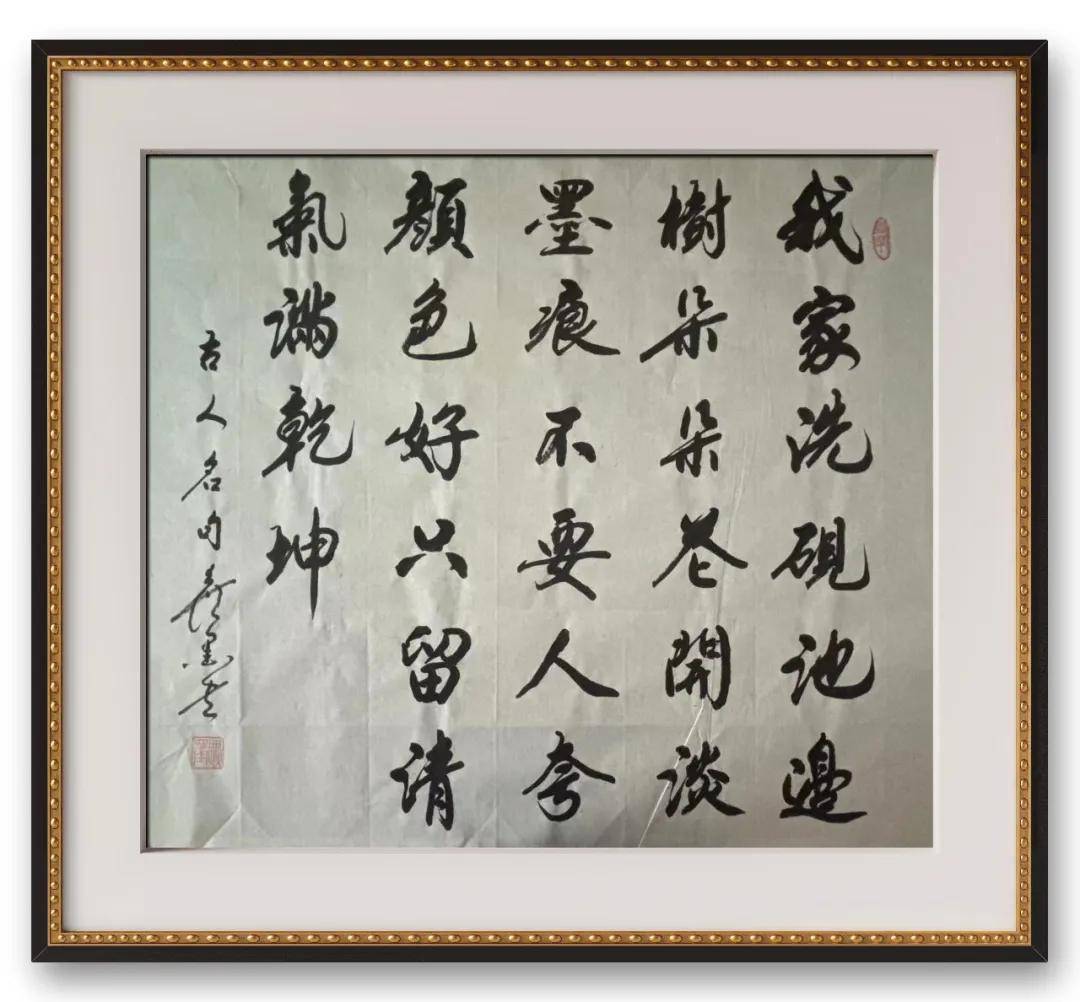 我家洗硯池邊
樹朵朵花開淡
墨痕不要人夸
顔色好只留清
氣滿乾坤
古人名句